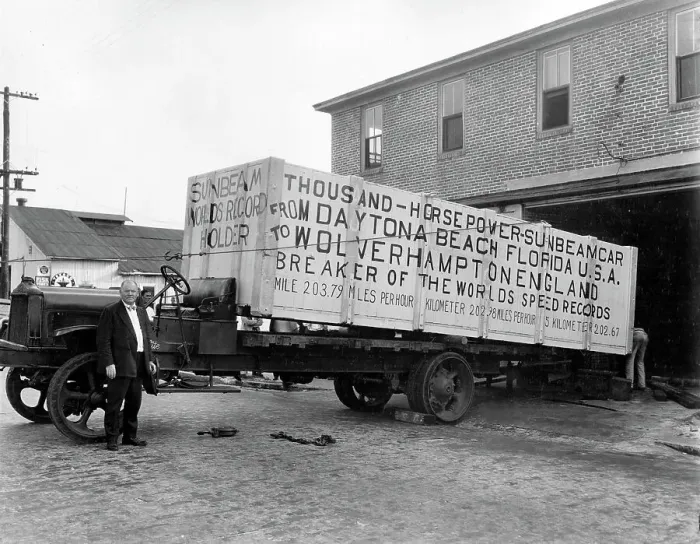 SUNBEAM
WORLDS RECORD
HOLDER
THOUSAND-HORSEPOWER-SUNBEAM CAR
FROM DAYTONA BEACH FLORIDA U.S.A.
TO WOLVERHAMPTON ENGLAND
BREAKER OF THE WORLDS SPEED RECORDS
MILE 203.79 MILES PER HOUR KILOMETER 202.98 MILES PER HOUR 5 KILOMETER 202.67